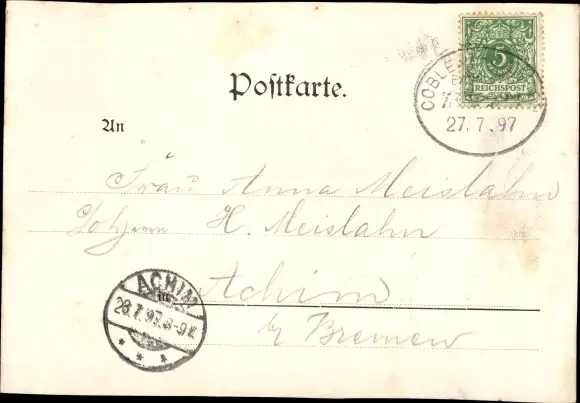 5
REICHSPOST
COBLE
27.7.97
Postkarte.
An
Frau Anna Meislahn
H. Meislahn
Achim
in
by Bremen
ACHIM
28.7.97. 8-9 V.